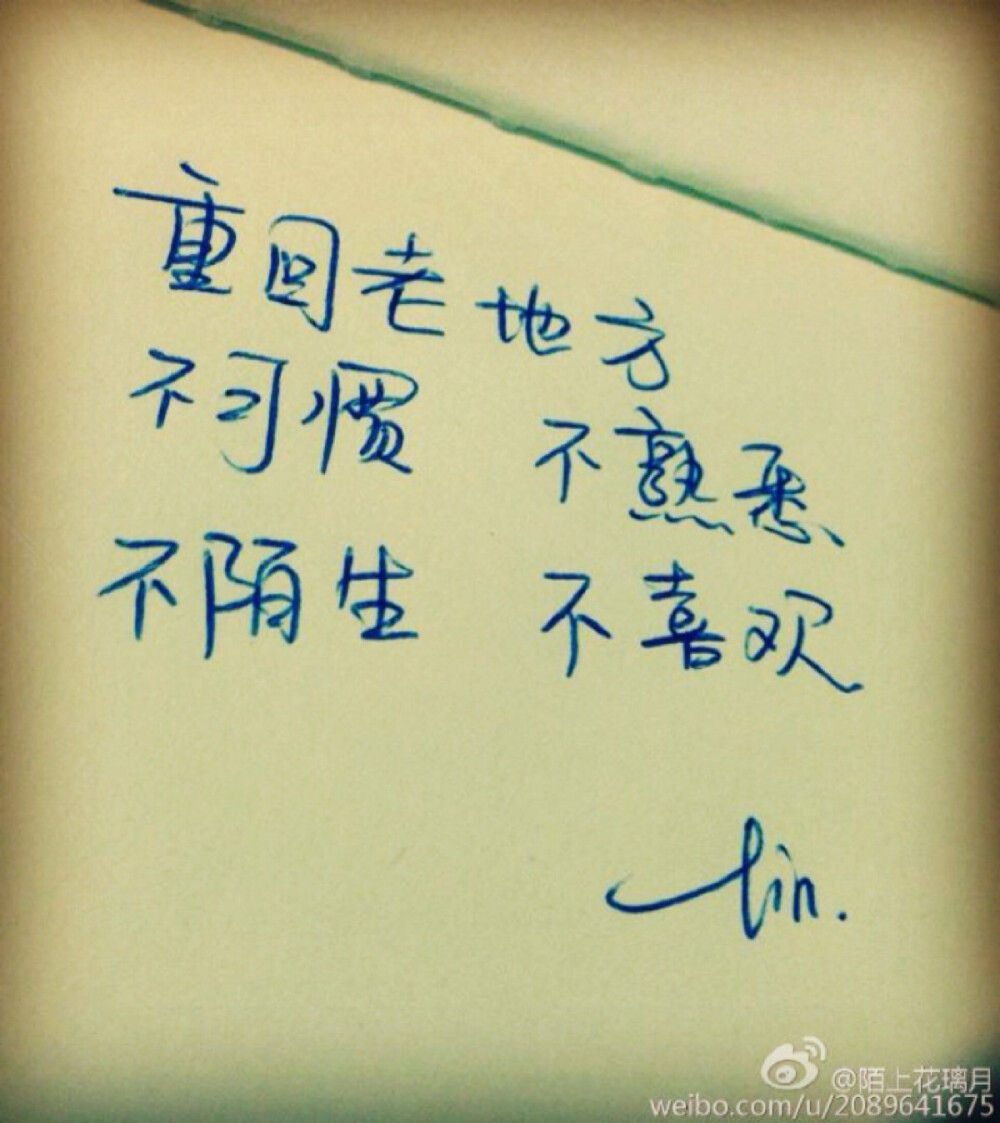 重回老地方
不习惯 不熟悉
不陌生 不喜欢
tin.
@陌上花璃月
weibo.com/u/2089641675